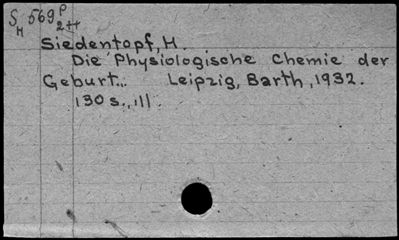 S 569 P
H 2++
Siedentopf, H.
Die Physiologische Chemie der
Geburt... Leipzig, Barth, 1932.
130 s., ill.